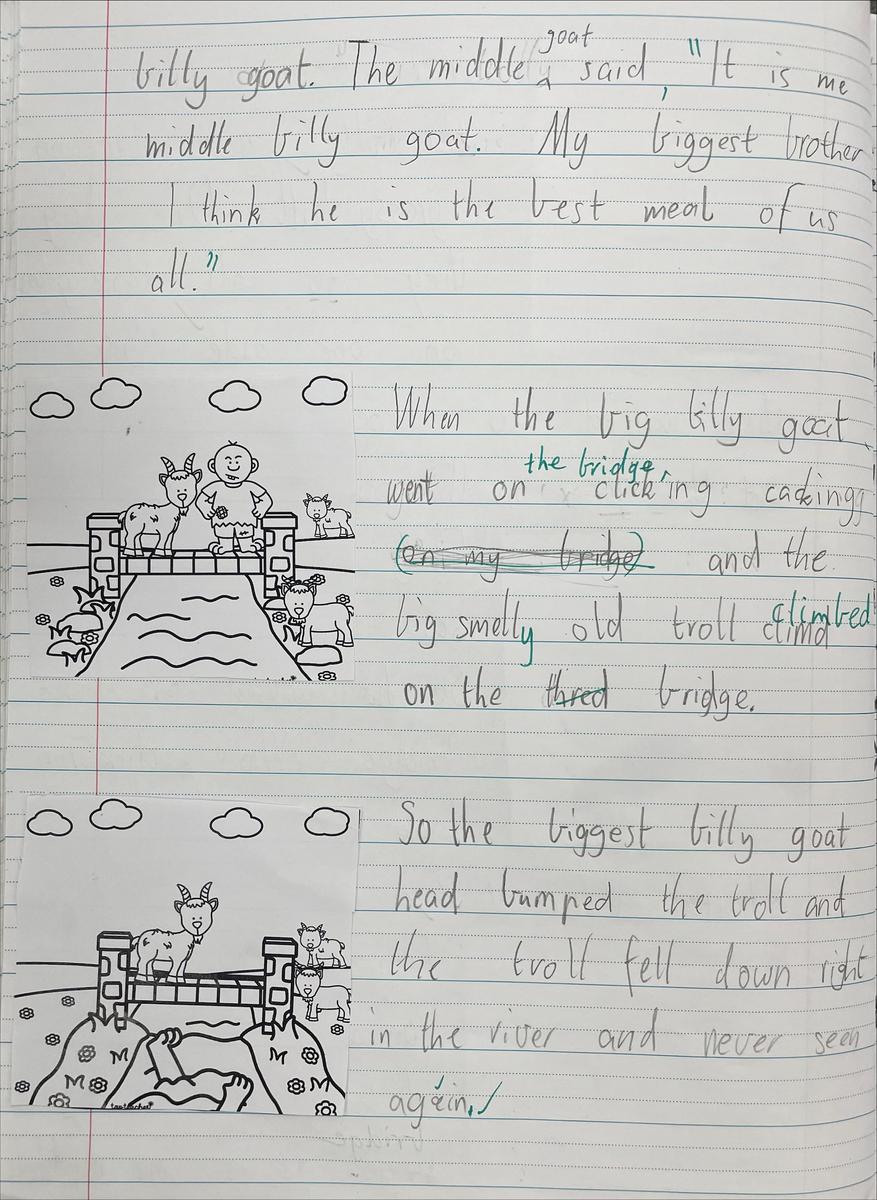 goat
billy goat. The middle said, "It is me
middle billy goat. My biggest brother
I think he is the best meal of us
all."
When the big billy goat
the bridge,
went on click'ing cacking
(on my bridge) and the
climbed
big smelly old troll climd
on the thred bridge.
So the biggest billy goat
head bumped the troll and
the troll fell down right
in the river and never seen
again.